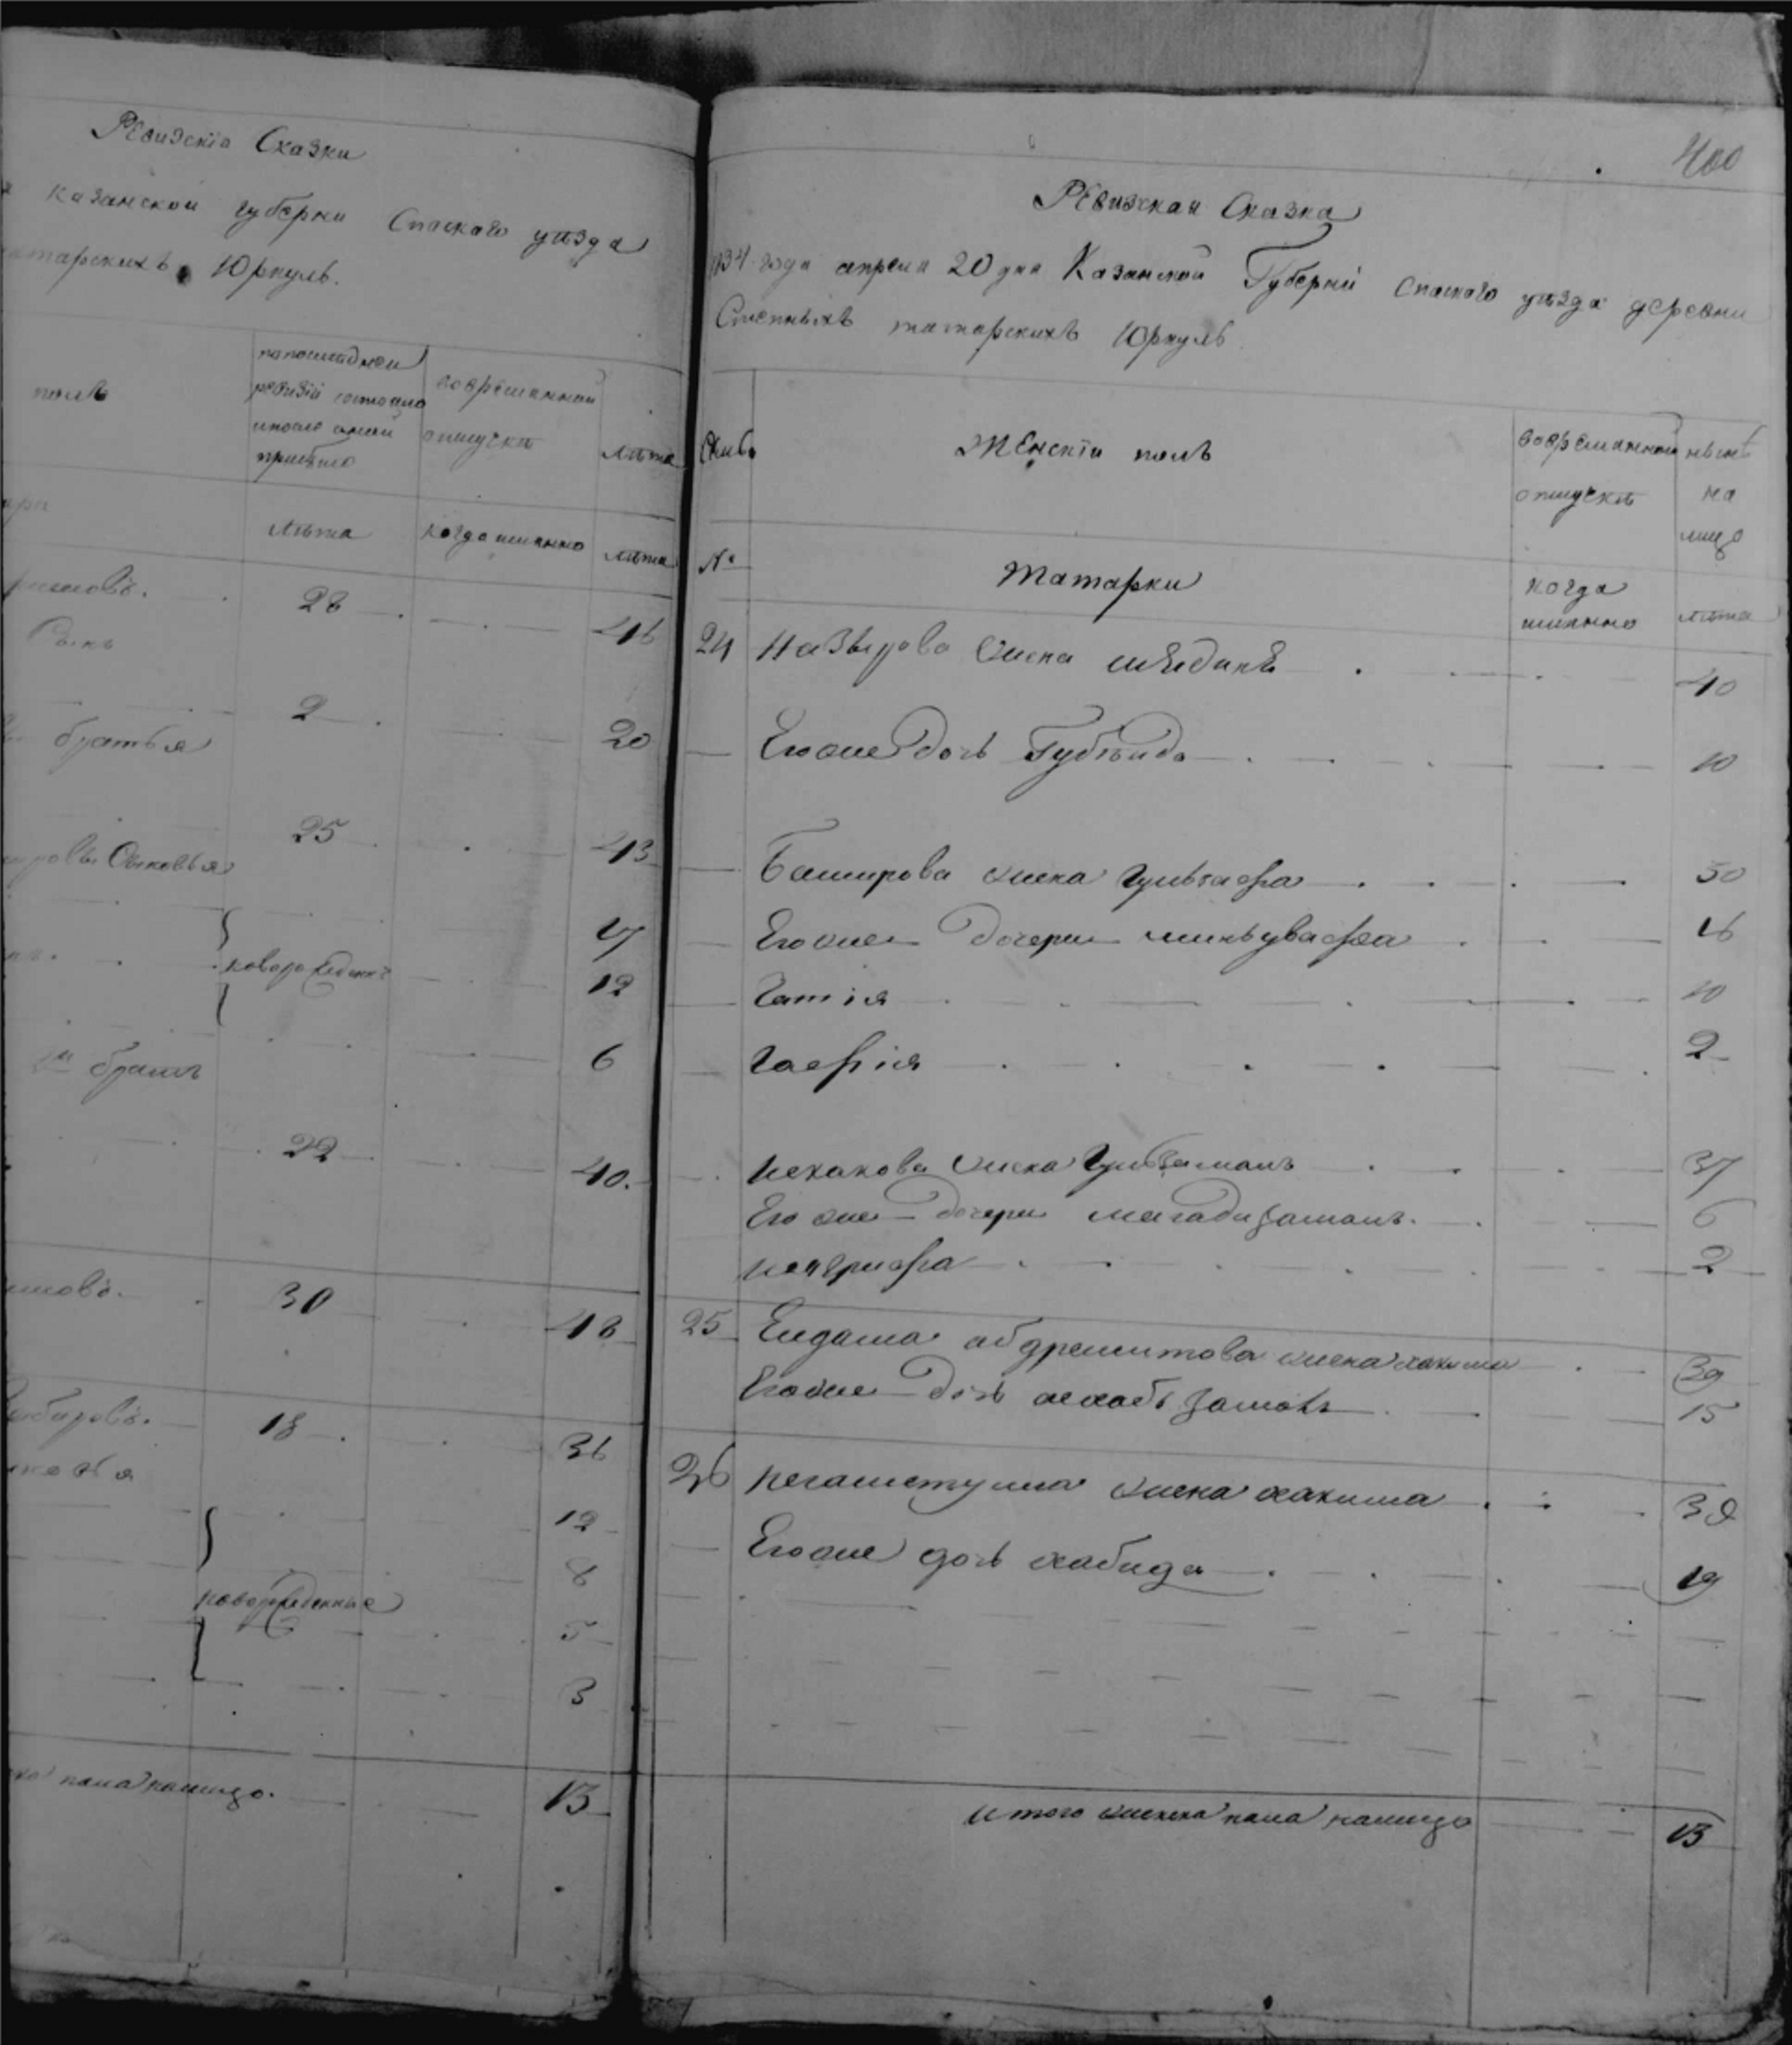 Ревизскіа Сказки
Казанской губерни Спаскаго уѣзда
татарскихъ Юркуль.
полъ
попоследнеи
ревизіи состояло
ипосле онои
прибыло
вовременнои
отлучкѣ
лѣта
лѣта
когда имянно
лѣта
28 46
Сынъ
2 20
братья
25 43
Сыновья
17
новорожденнъ
12
6
братъ
22 40.
30 48
18 36
12
8
новорожденные
5
3
пола налицо. 13
400
Ревизская Сказка
1834 года апреля 20 дня Казанской Губерніи Спаского уѣзда деревни
Степныхъ татарскихъ Юркуль
Женскіи полъ
вовременнои
отлучкѣ
нынѣ
на
лицо
№
Татарки
когда
имянно
лѣта
24 Назырова жена 40
Егоже дочь Губъида 10
Баширова жена Гульзафа 50
Егоже дочери миньувафза 16
Гатія 10
Гафія 2
Исхакова жена Гульзаманъ 37
Его же дочери магадизаманъ. 6
2
25 Ендаша абдрешитова жена хакима 39
Егоже дочь 15
26 Негаметуллы жена хакима 38
Егоже дочь хабида 19
Итого женска пола налицо 13